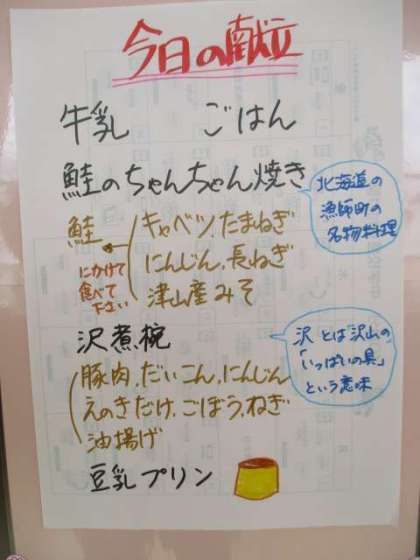 今日の献立
牛乳 ごはん
鮭のちゃんちゃん焼き
北海道の
漁師町の
名物料理
鮭
にかけて
食べて
下さい
キャベツ,たまねぎ
にんじん,長ねぎ
津山産みそ
沢煮椀
沢とは沢山の、
「いっぱいの具」
という意味
豚肉,だいこん,にんじん
えのきだけ,ごぼう,ねぎ
油揚げ
豆乳プリン